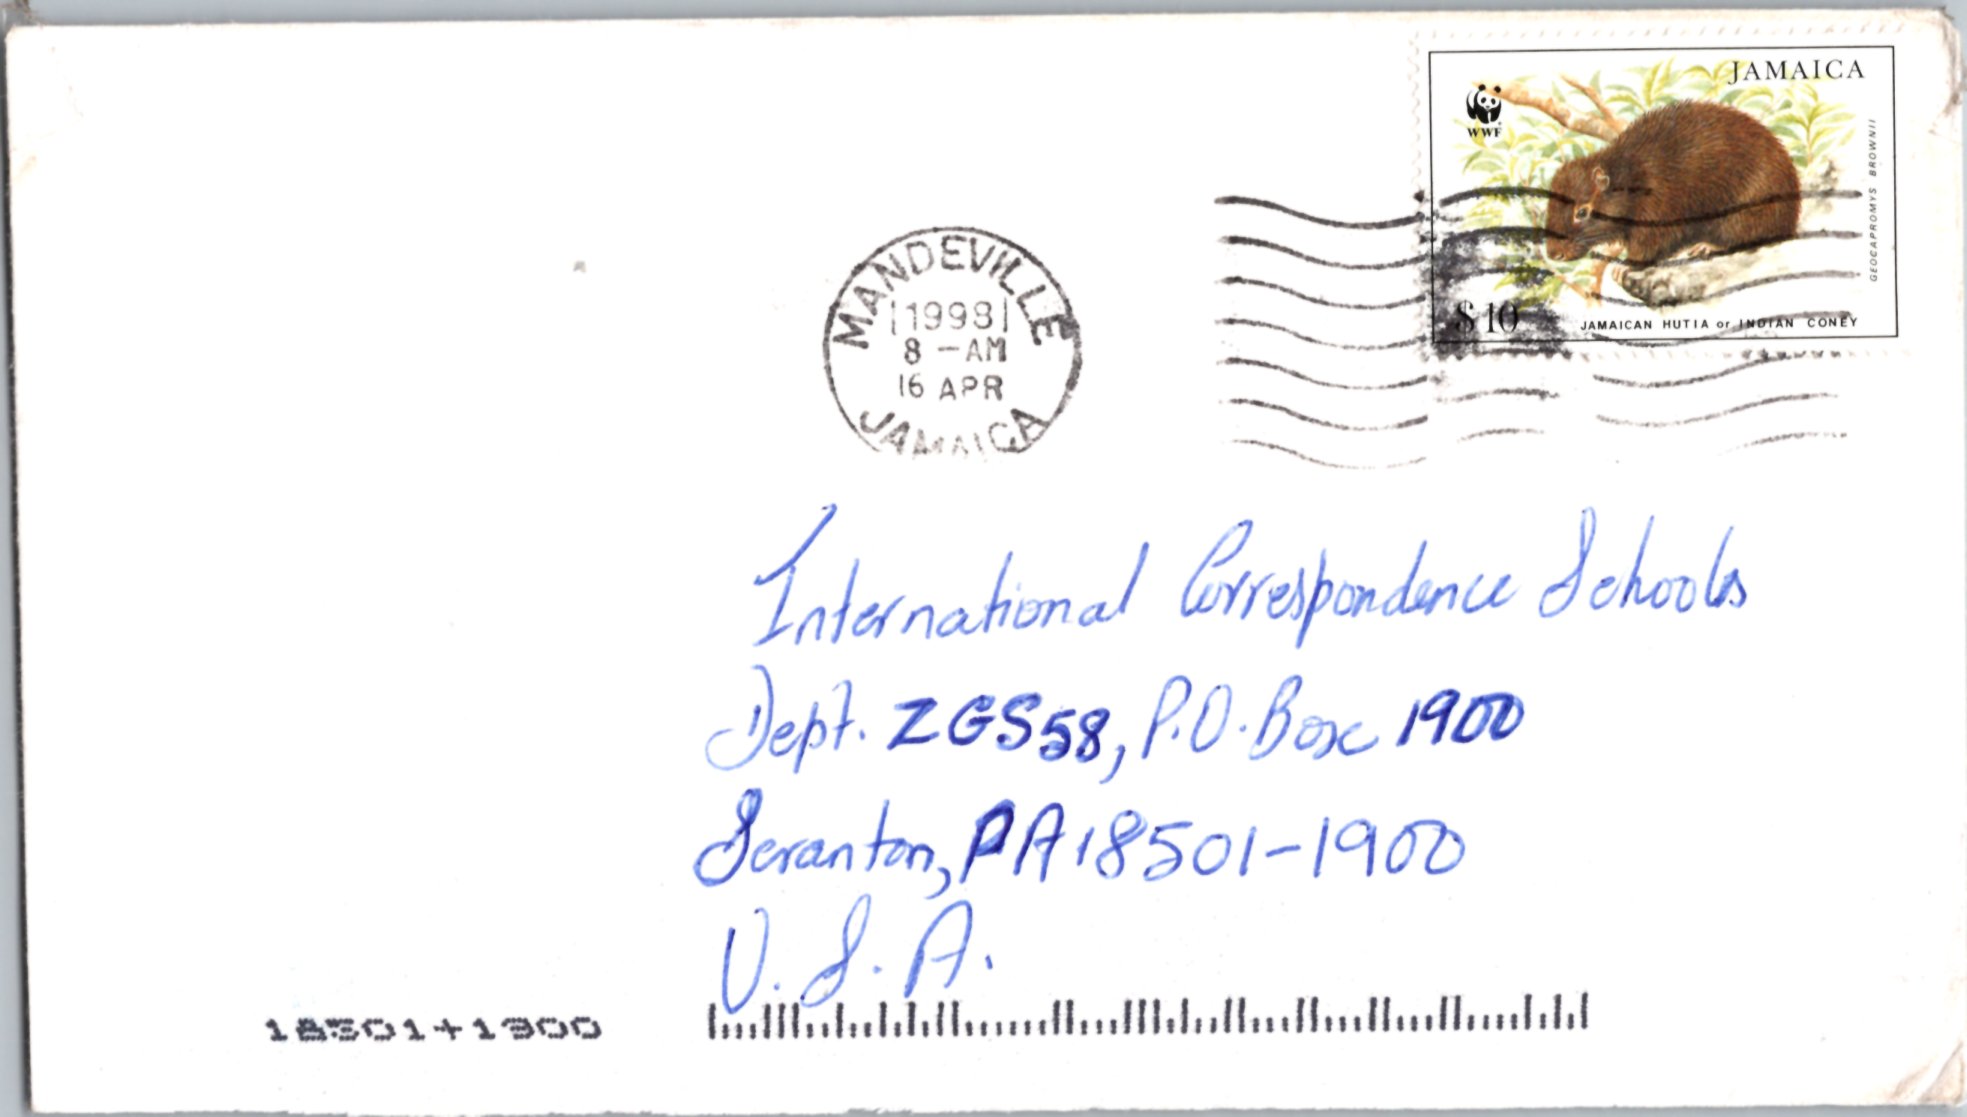 JAMAICA
WWF
GEOCAPROMYS BROWNII
$10
JAMAICAN HUTIA or INDIAN CONEY
MANDEVILLE
1998
8 — AM
16 APR
JAMAICA
International Correspondence Schools
Dept. ZGS58, P.O. Box 1900
Scranton, PA 18501-1900
U.S.A.
18501+1900